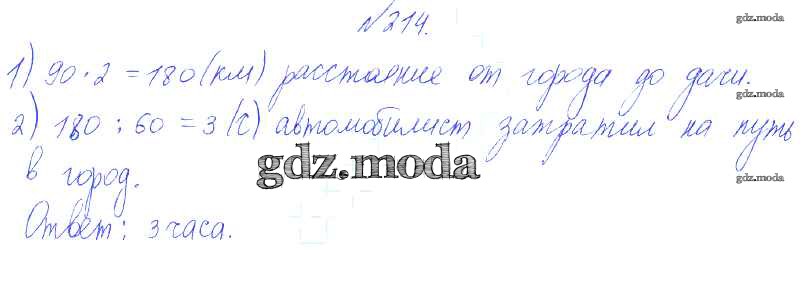 № 214.
gdz.moda
1) 90 · 2 = 180 (км) расстояние от города до дачи.
2) 180 : 60 = 3 (ч) автомобилист затратил на путь
gdz.moda
в город.
gdz.moda
Ответ: 3 часа.
gdz.moda